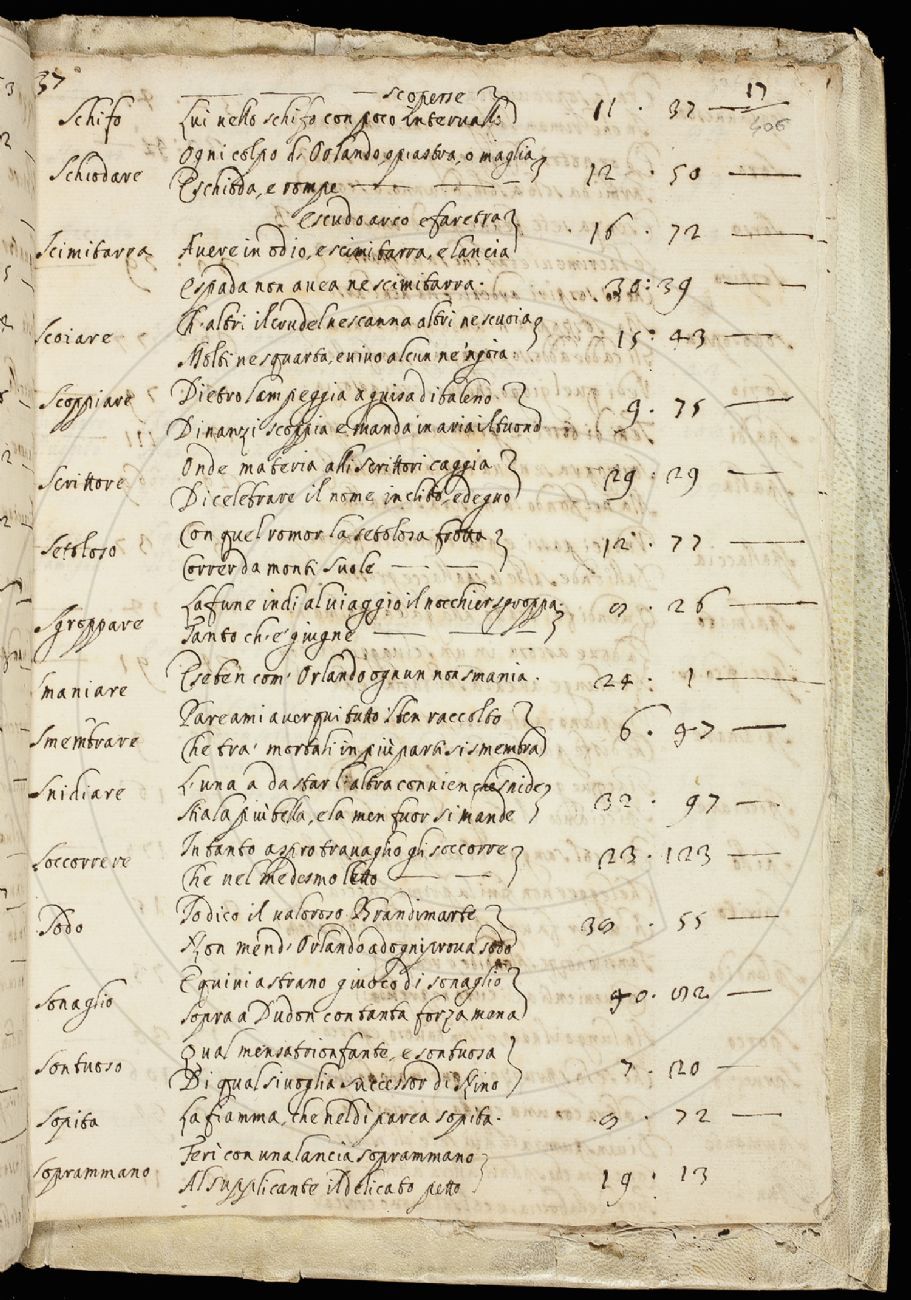 37
17
406
— — — scoperse
Schifo Lui nello schifo con poco interuallo 11 . 37 —
Ogni colpo d'Orlando, o piastra, o maglia
Schiodare E schioda, e rompe — — — 12 . 50 —
e scudo arco e faretra 16 . 72 —
Scimitarra Auere in odio, e scimitarra, e lancia
e spada non auea ne scimitarra. 30 : 39 —
Scoiare Ch'altri il crudel ne scanna altri ne scuoia 15 : 43 —
Molti ne squarta, e uiuo alcun ne 'ngoia
Scoppiare Dietro lampeggia a guisa di baleno. 9 . 75 —
Dinanzi scoppia e manda in aria il tuono
Scrittore Onde materia alli scrittori caggia 29 . 29 —
Di celebrare il nome inclito, e degno
Setoloso Con quel romor la setolosa frotta 12 . 77 —
Correr da monti suole — . —
Sgroppare La fune indi al uiaggio il nocchier sgroppa 9 . 26 —
Tanto ch'e' giugne — — —
Smaniare E se ben com' Orlando ognun non smania . 24 : 1 —
Smembrare Pareami auer qui tutto 'l ben raccolto 6 . 47 —
Che tra' mortali in più parti si smembra
Snidiare L'una a da star l'altra conuien che snide 32 . 97 —
Stia la più bella, e la men fuor si mande
Soccorrere In tanto aspro trauaglio gli soccorre 23 . 123 —
Che nel medesmo letto — —
Sodo Io dico il ualoroso Brandimarte 39 . 55 —
Non men d'Orlando ad ogni proua sodo
Sonaglio E quiui a strano giuoco di sonaglio 40 . 82 —
Sopra a Dudon con tanta forza mena
Sontuoso Qual mensa trionfante, e sontuosa 7 . 20 —
Di qual si uoglia successor di Nino
Sopita La fiamma, che nel dì parea sopita . 8 . 72 —
Soprammano Ferì con una lancia soprammano 19 : 13
Al supplicante il delicato petto